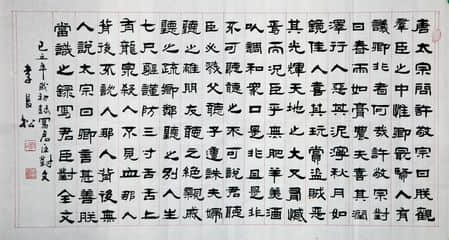 唐太宗問許敬宗曰朕觀
群臣之中惟卿最賢人有
議卿非者何哉許敬宗對
曰春雨如膏農夫喜其潤
澤行人惡其泥濘秋月如
鏡佳人喜其玩賞盜賊惡
其光輝天地之大又有憾
焉而況臣乎臣無羊美
以調和眾口是非且是非
不可聽聽之不可說君聽
臣必滅父聽子遭誅夫婦
聽之離朋友聽之絕親戚
聽之疏鄉鄰聽之別人生
七尺軀謹防三寸舌舌上
有龍泉殺人不見血那人
背後不說人那人背後無
人說太宗曰卿言甚善朕
當識之錄寫君臣對全文
己丑年 寫君臣對文
李 松